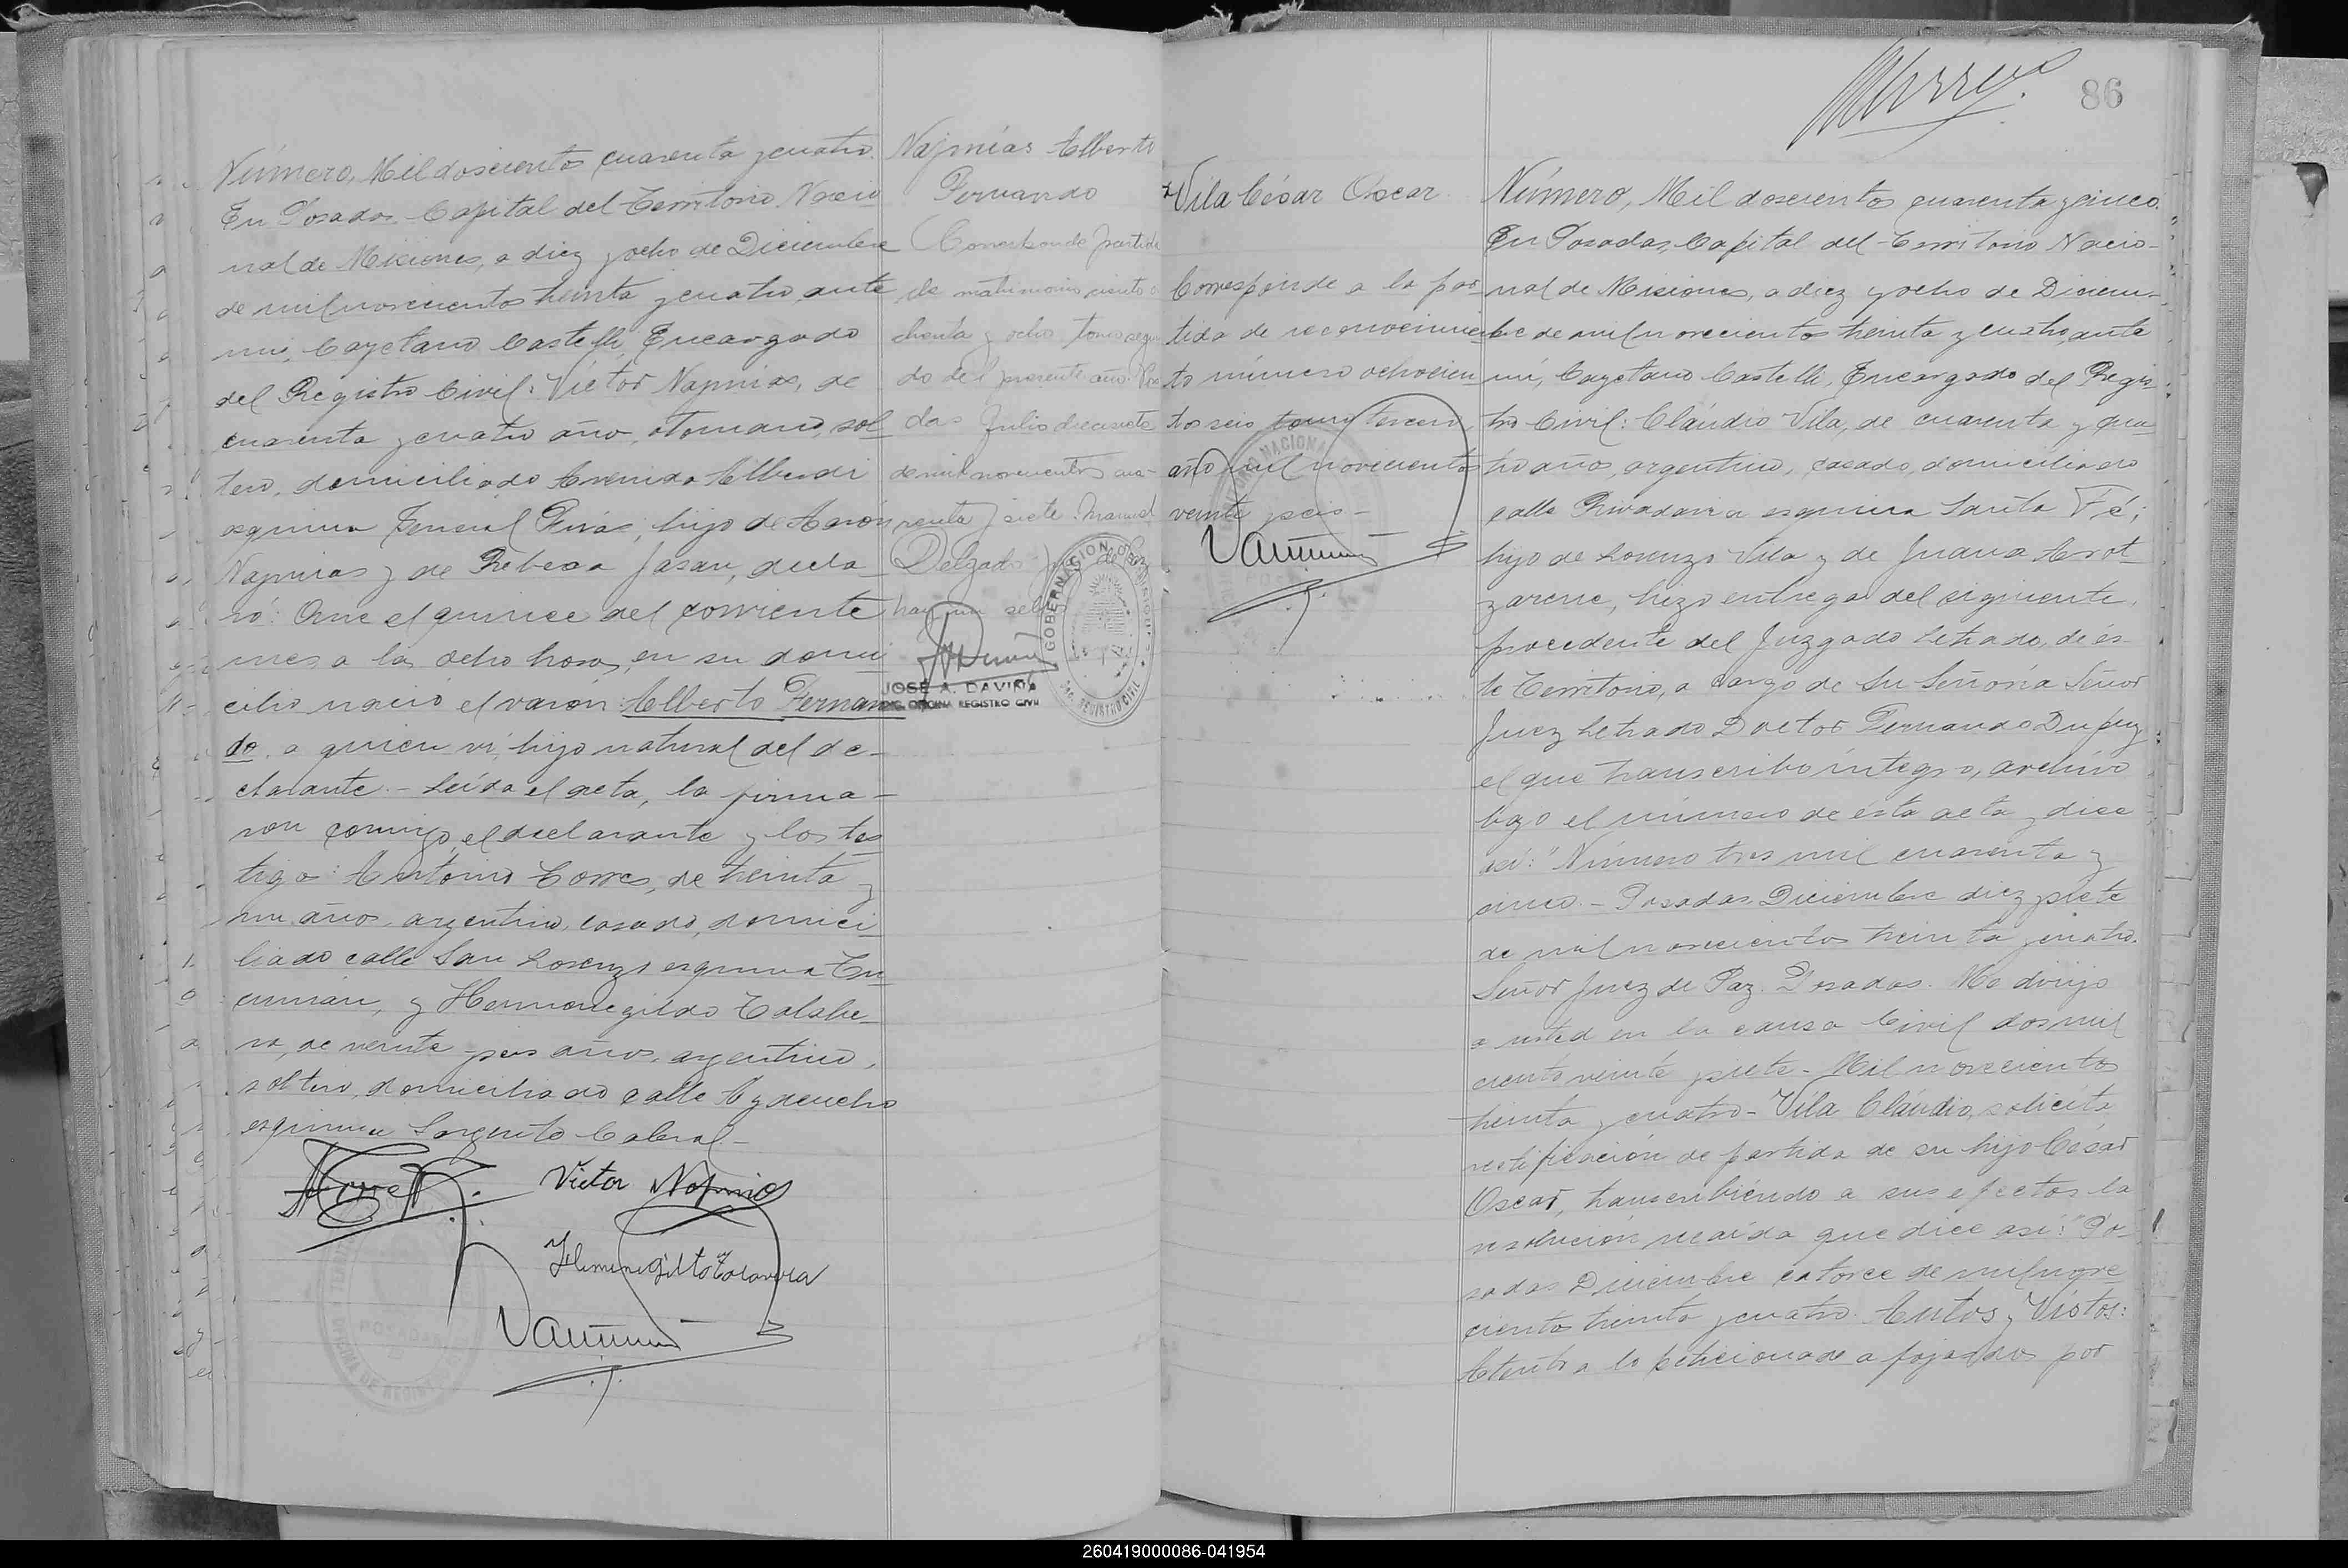 Número, Mil doscientos cuarenta y cuatro.
En Posadas Capital del Territorio Nacio
nal de Misiones, a diez y ocho de Diciembre
de mil novecientos treinta y cuatro, ante
mi, Cayetano Castelli, Encargado
del Registro Civil: Victor Najmias, de
cuarenta y cuatro años, otomano, sol
tero, domiciliado Avenida Alberdi
esquina General Rivas, hijo de Aaron
Najmias y de Rebeca Jasan, decla-
ró: Que el quince del corriente
mes, a las ocho horas, en su domi
cilio nació el varón: Alberto Fernan
do, a quien ví, hijo natural del de-
clarante.- Leída el acta, la firma-
ron conmigo, el declarante y los tes
tigos: Antonio Torres, de treinta y
un años, argentino, casado, domici
liado calle San Lorenzo esquina Tu
cumán, y Hermenegildo Talabe-
ra, de veinte y seis años, argentino,
soltero, domiciliado calle Ayacucho
esquina Sargento Cabral.-
Victor Najmias
Hermenegildo Talavera
Najmías Alberto
Fernando
Corresponde partida
de matrimonio ciento o
chenta y ocho tomo segun
do del presente año. Posa
das Julio diecisiete
de mil novecientos cua-
renta y siete. Manuel
Delgado Juez de Paz
hay un sello
GOBERNACION DE MISIONES
REGISTRO CIVIL
JOSE A. DAVIÑA
ENC. OFICINA REGISTRO CIVIL
86
Vila César Oscar.
Corresponde a la par
tida de reconocimien
to número ochocien
tos seis tomo tercero,
año mil novecientos
veinte y seis-
Número, Mil doscientos cuarenta y cinco.
En Posadas, Capital del Territorio Nacio-
nal de Misiones, a diez y ocho de Diciem-
bre de mil novecientos treinta y cuatro, ante
mí, Cayetano Castelli, Encargado del Regis
tro Civil: Cláudio Vila, de cuarenta y cua
tro años, argentino, casado, domiciliado
calle Rivadavia esquina Santa Fé;
hijo de Lorenzo Vila y de Juana Arot
zarene, hizo entrega del siguiente,
procedente del Juzgado Letrado, de és-
te Territorio, a cargo de Su Señoría Señor
Juez Letrado Doctor Fernando Dupuy
el que transcribo íntegro, archivo
bajo el número de ésta acta y dice
así: "Número tres mil cuarenta y
cinco.- Posadas, Diciembre diez y siete
de mil novecientos treinta y cuatro.
Señor Juez de Paz. Posadas. Me dirijo
a usted en la causa Civil dos mil
ciento veinte y siete- Mil novecientos
treinta y cuatro- Vila Cláudio, solicita
rectificación de partida de su hijo César
Oscar, transcribiendo a sus efectos la
resolución recaída que dice así: "Po-
sadas Diciembre catorce de mil nove
cientos treinta y cuatro. Autos y Vistos:
Atento a lo peticionado a fojas dos por
260419000086-041954